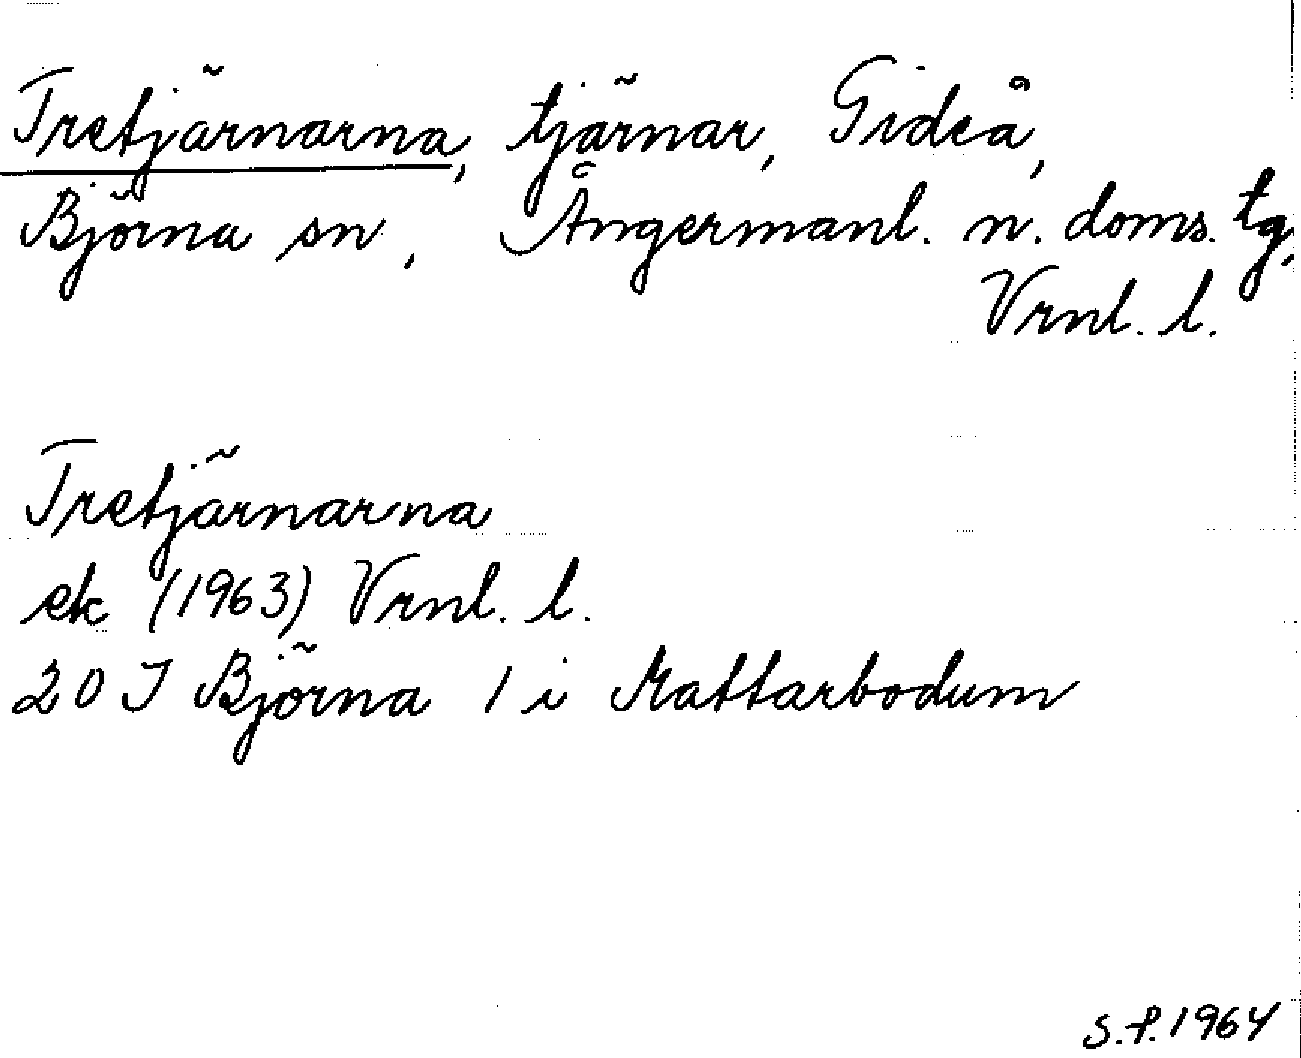 Tretjärnarna, tjärnar, Gideå,
Björna sn, Ångermanl. n. doms. tg,
Vrnl. l.
Tretjärnarna
ek (1963) Vrnl. l.
20 J Björna 1 i Mattarbodum
S.P. 1964